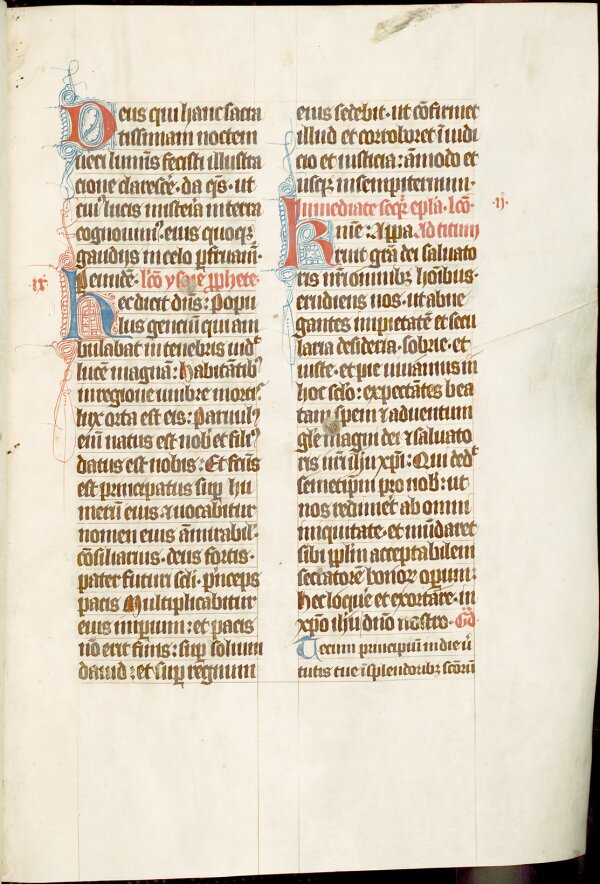 Deus qui hanc sacra
tissimam noctem
ueri luminis fecisti illustra
cione clarescẽ · da q̃s · ut
cuiꝰ lucis misteria in terra
cognouimꝰ · eius quoqꝫ
gaudijs in celo pfruam̃ ·
Per eundẽ · lc̃o ysaye p̱phete ·
ix
Hec dicit dñs : Popu
lus genciũ qui am
bulabat in tenebris uid̾
lucẽ magnã : habitãtibꝰ
in regione umbre mortis
lux orta est eis : Paruulꝰ
eĩ natus est nob̾ et filiꝰ
datus est nobis : Et fcũs
est principatus suꝑ hu
merũ eius ⁊ uocabitur
nomen eius ãmirabil̾ ·
cõsiliarius · deus fortis ·
pater futuri scl̾i · p̃nceps
pacis Multiplicabitur
eius imꝑium : et pacis
nõ erit finis : suꝑ solium
dauid : et suꝑ regnum
eius sedebit · ut cõfirmet
illud et corroboret ĩ iudi
cio et iusticia : ãmodo et
usqꝫ in sempiternum ·
Immediate seq̃r ep̃la · lc̃o ·
·ij·
Kr̃me : Appa Ad titum
Ruit gr̃a dei saluato
ris nr̃i omnibꝫ hõibus ·
erudiens nos · ut abne
gantes impietatẽ et secu
laria desideria · sobrie · et
iuste · et pie uiuamus in
hoc sclo : expectãtes bea
tam spem ⁊ aduentum
gl̃e magni dei ⁊ saluato
ris nr̃i ih̃u xp̃i : Qui ded̾
semetip̃m pro nob̾ : ut
nos redimẽt ab omni
iniquitate · et mũdaret
sibi pp̃lm acceptabilem
sectatorẽ bonoꝝ oꝑum :
hec loquẽ et exortare · in
xp̃o ih̃u dño nostro · Gd̃
Tecum principiũ in die uĩ
tutis tue ĩ splendoribꝫ sc̃orũ